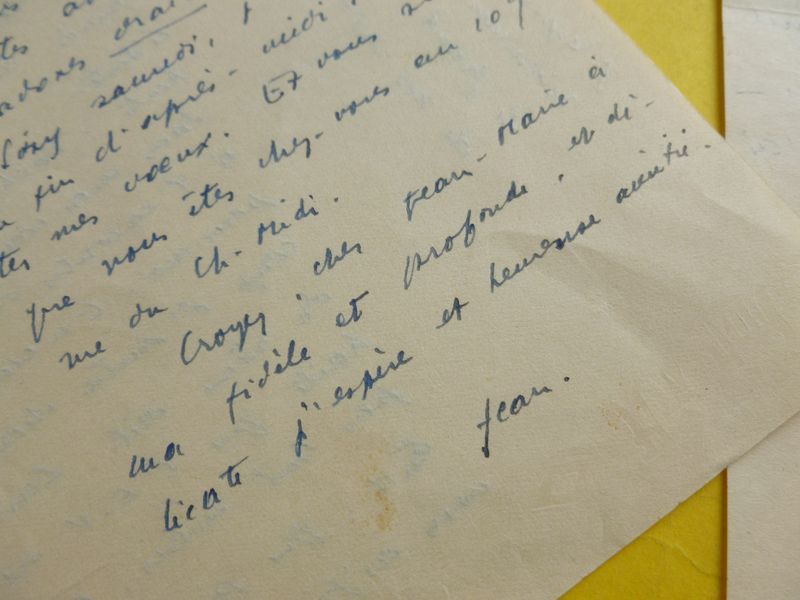 samedi,
fin d'après-midi,
mes vœux. Et vous
que vous êtes chez-vous au 107
me du Ch-Midi.
Croyez, cher Jean-Marie à
ma fidèle et profonde, et dé-
licate j'espère et heureuse amitié.
Jean.